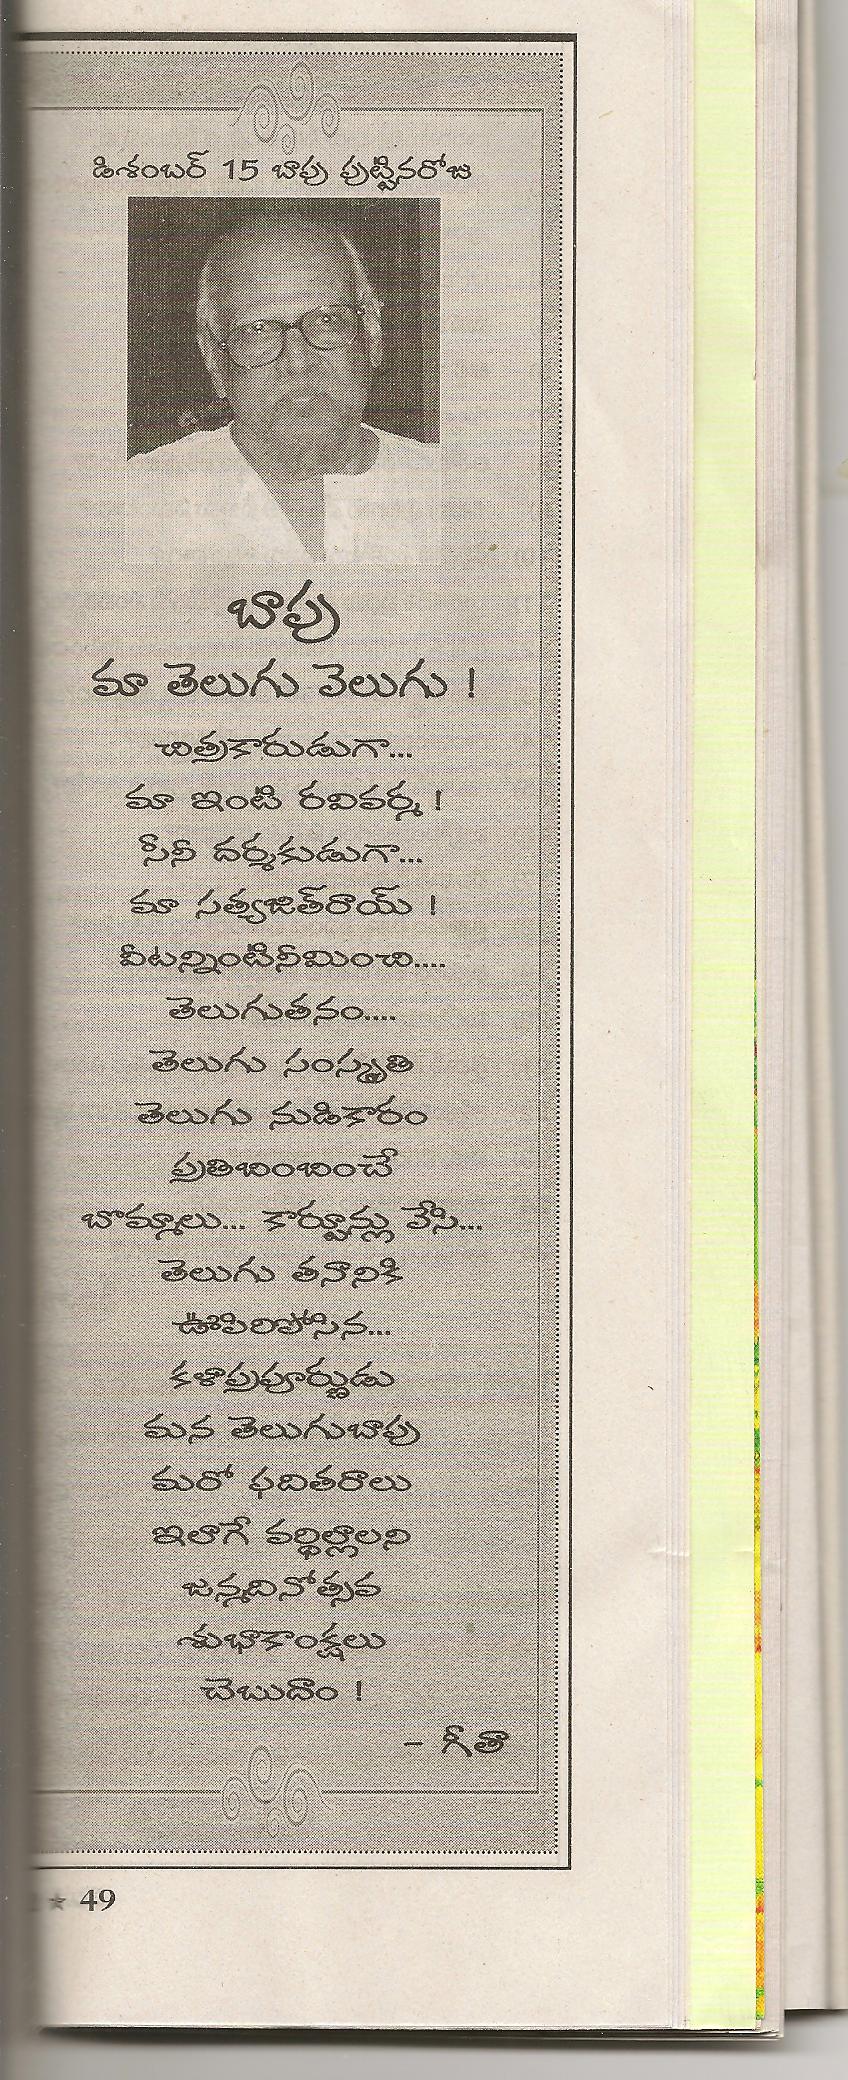 డిశంబర్ 15 బాపు పుట్టినరోజు
బాపు
మా తెలుగు వెలుగు !
చిత్రకారుడుగా...
మా ఇంటి రవివర్మ !
సినీ దర్శకుడుగా...
మా సత్యజిత్‌రాయ్ !
వీటన్నింటినీమించి....
తెలుగుతనం....
తెలుగు సంస్కృతి
తెలుగు నుడికారం
ప్రతిబింబించే
బొమ్మాలు... కార్టూన్లు వేసి...
తెలుగు తనానికి
ఊపిరిపోసిన...
కళాప్రపూర్ణుడు
మన తెలుగుబాపు
మరో పదితరాలు
ఇలాగే వర్ధిల్లాలని
జన్మదినోత్సవ
శుభాకాంక్షలు
చెబుదాం !
- గీతా
★ 49